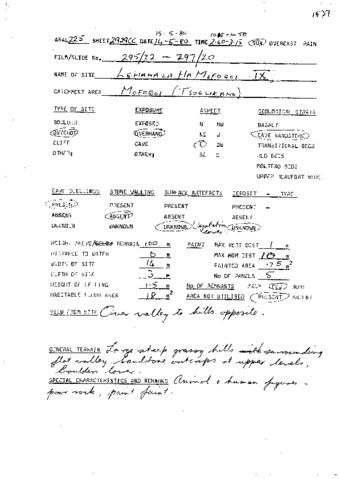 15·5·80 10·45-10·50
AREA 225 SHEET 2929CC DATE 14-5-80 TIME SUN OVERCAST RAIN
FILM/SLIDE No. 295/32 — 297/20
NAME OF SITE HA MOFOROI IX
CATCHMENT AREA MOFOROI
TYPE OF SITE EXPOSURE ASPECT GEOLOGICAL STRATA
BOULDER EXPOSED N NW BASALT
OUTCROP OVERHANG CAVE SANDSTONE
CLIFF CAVE SW TRANSITIONAL BEDS
OTHER: OTHER: SE S RED BEDS
MOLTENO BEDS
UPPER BEAUFORT BEDS
CAVE DWELLINGS STONE WALLING SURFACE ARTEFACTS DEPOSIT - TYPE
PRESENT PRESENT PRESENT PRESENT -
ABSENT ABSENT ABSENT ABSENT
UNKNOWN UNKNOWN UNKNOWN Vegetation cover UNKNOWN
HEIGHT ABOVE TERRAIN 100 m PAINT MAX VERT DIST 1 m
DISTANCE TO WATER m MAX HOR DIST 10 m
WIDTH OF SITE 14 m PAINTED AREA ·75 m²
DEPTH OF SITE 3 m No OF PANELS 5
HEIGHT OF CEILING 1·5 m No OF REMNANTS MANY FEW NONE
HABITABLE FLOOR AREA 18 m² AREA NOT UTILISED PRESENT ABSENT
VIEW FROM SITE Over valley to hills opposite.
GENERAL TERRAIN Large steep grassy hills with surrounding
flat valley. Sandstone outcrops at upper levels,
boulder cover.
SPECIAL CHARACTERISTICS AND REMARKS Animal & human figures -
poor rock, paint faint.